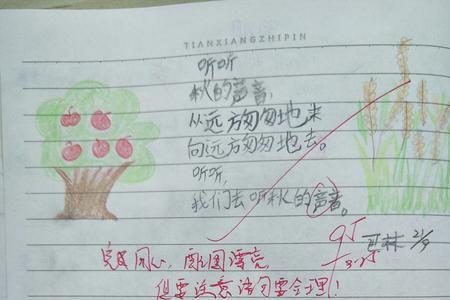 TIANXIANGZHIPIN
听听
秋的声音,
从远方匆匆地来
向远方匆匆地去。
听听,
我们去听秋的声音。
95
完成用心,配图漂亮,
但要注意语句要合理!